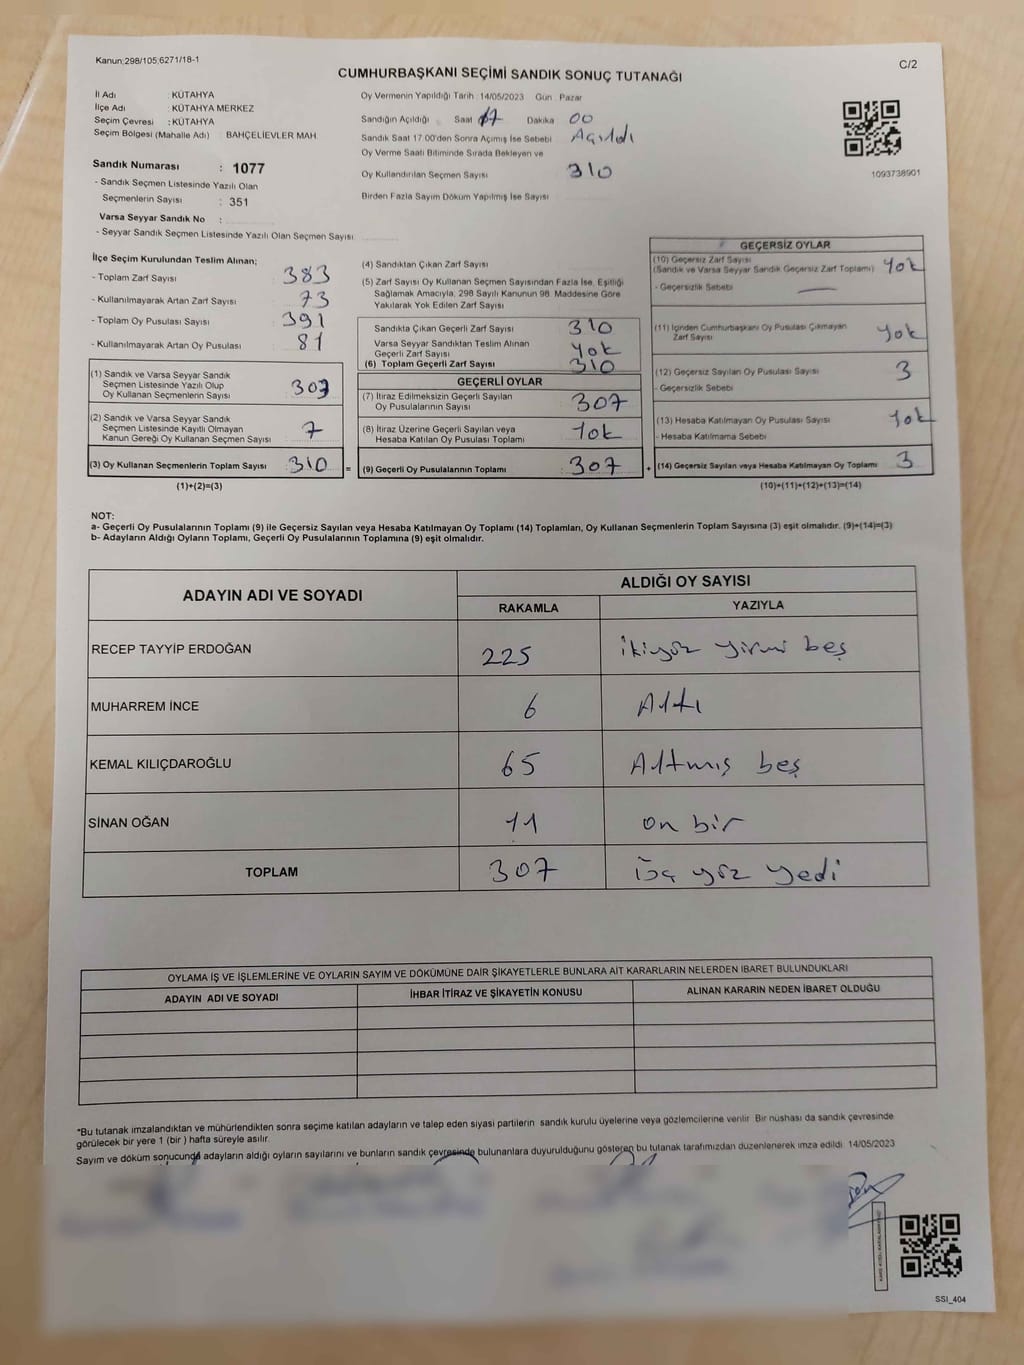 Kanun:298/105,6271/18-1
C/2
CUMHURBAŞKANI SEÇİMİ SANDIK SONUÇ TUTANAĞI
İl Adı : KÜTAHYA
İlçe Adı : KÜTAHYA MERKEZ
Seçim Çevresi : KÜTAHYA
Seçim Bölgesi (Mahalle Adı) : BAHÇELİEVLER MAH.
Sandık Numarası : 1077
- Sandık Seçmen Listesinde Yazılı Olan
Seçmenlerin Sayısı : 351
Varsa Seyyar Sandık No :
- Seyyar Sandık Seçmen Listesinde Yazılı Olan Seçmen Sayısı:
Oy Vermenin Yapıldığı Tarih : 14/05/2023 Gün : Pazar
Sandığın Açıldığı Saat 17 Dakika 00
Sandık Saat 17.00'den Sonra Açımış İse Sebebi Açıldı
Oy Verme Saati Bitiminde Sırada Bekleyen ve
Oy Kullandırılan Seçmen Sayısı 310
Birden Fazla Sayım Döküm Yapılmış İse Sayısı
1093738901
İlçe Seçim Kurulundan Teslim Alınan;
- Toplam Zarf Sayısı : 383
- Kullanılmayarak Artan Zarf Sayısı : 73
- Toplam Oy Pusulası Sayısı : 391
- Kullanılmayarak Artan Oy Pusulası : 81
(1) Sandık ve Varsa Seyyar Sandık
Seçmen Listesinde Yazılı Olup
Oy Kullanan Seçmenlerin Sayısı : 303
(2) Sandık ve Varsa Seyyar Sandık
Seçmen Listesinde Kayıtlı Olmayan
Kanun Gereği Oy Kullanan Seçmen Sayısı : 7
(3) Oy Kullanan Seçmenlerin Toplam Sayısı : 310 =
(1)+(2)=(3)
(4) Sandıktan Çıkan Zarf Sayısı
(5) Zarf Sayısı Oy Kullanan Seçmen Sayısından Fazla İse, Eşitliği
Sağlamak Amacıyla, 298 Sayılı Kanunun 98. Maddesine Göre
Yakılarak Yok Edilen Zarf Sayısı
Sandıkta Çıkan Geçerli Zarf Sayısı : 310
Varsa Seyyar Sandıktan Teslim Alınan
Geçerli Zarf Sayısı : Yok
(6) Toplam Geçerli Zarf Sayısı : 310
GEÇERLİ OYLAR
(7) İtiraz Edilmeksizin Geçerli Sayılan
Oy Pusulalarının Sayısı : 307
(8) İtiraz Üzerine Geçerli Sayılan veya
Hesaba Katılan Oy Pusulası Toplamı : Yok
(9) Geçerli Oy Pusulalarının Toplamı : 307 +
GEÇERSİZ OYLAR
(10) Geçersiz Zarf Sayısı
(Sandık ve Varsa Seyyar Sandık Geçersiz Zarf Toplamı) Yok
- Geçersizlik Sebebi
(11) İçinden Cumhurbaşkanı Oy Pusulası Çıkmayan
Zarf Sayısı Yok
(12) Geçersiz Sayılan Oy Pusulası Sayısı : 3
- Geçersizlik Sebebi
(13) Hesaba Katılmayan Oy Pusulası Sayısı : Yok
- Hesaba Katılmama Sebebi
(14) Geçersiz Sayılan veya Hesaba Katılmayan Oy Toplamı : 3
(10)+(11)+(12)+(13)=(14)
NOT:
a- Geçerli Oy Pusulalarının Toplamı (9) ile Geçersiz Sayılan veya Hesaba Katılmayan Oy Toplamı (14) Toplamları, Oy Kullanan Seçmenlerin Toplam Sayısına (3) eşit olmalıdır. (9)+(14)=(3)
b- Adayların Aldığı Oyların Toplamı, Geçerli Oy Pusulalarının Toplamına (9) eşit olmalıdır.
ADAYIN ADI VE SOYADI
ALDIĞI OY SAYISI
RAKAMLA YAZIYLA
RECEP TAYYİP ERDOĞAN 225 ikiyüz yirmi beş
MUHARREM İNCE 6 Altı
KEMAL KILIÇDAROĞLU 65 Altmış beş
SİNAN OĞAN 11 on bir
TOPLAM 307 üç yüz yedi
OYLAMA İŞ VE İŞLEMLERİNE VE OYLARIN SAYIM VE DÖKÜMÜNE DAİR ŞİKAYETLERLE BUNLARA AİT KARARLARIN NELERDEN İBARET BULUNDUKLARI
ADAYIN ADI VE SOYADI İHBAR İTİRAZ VE ŞİKAYETİN KONUSU ALINAN KARARIN NEDEN İBARET OLDUĞU
*Bu tutanak imzalandıktan ve mühürlendikten sonra seçime katılan adayların ve talep eden siyasi partilerin sandık kurulu üyelerine veya gözlemcilerine verilir. Bir nüshası da sandık çevresinde
görülecek bir yere 1 (bir ) hafta süreyle asılır.
Sayım ve döküm sonucunda adayların aldığı oyların sayılarını ve bunların sandık çevresinde bulunanlara duyurulduğunu gösteren bu tutanak tarafımızdan düzenlenerek imza edildi. 14/05/2023
SSI_404